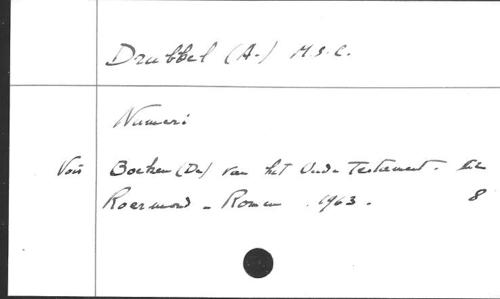 Drubbel (A.) M.S.C.
Numeri
Voir Boeken (De) van het Oude Testament.
Roermond - Romen . 1963. 8